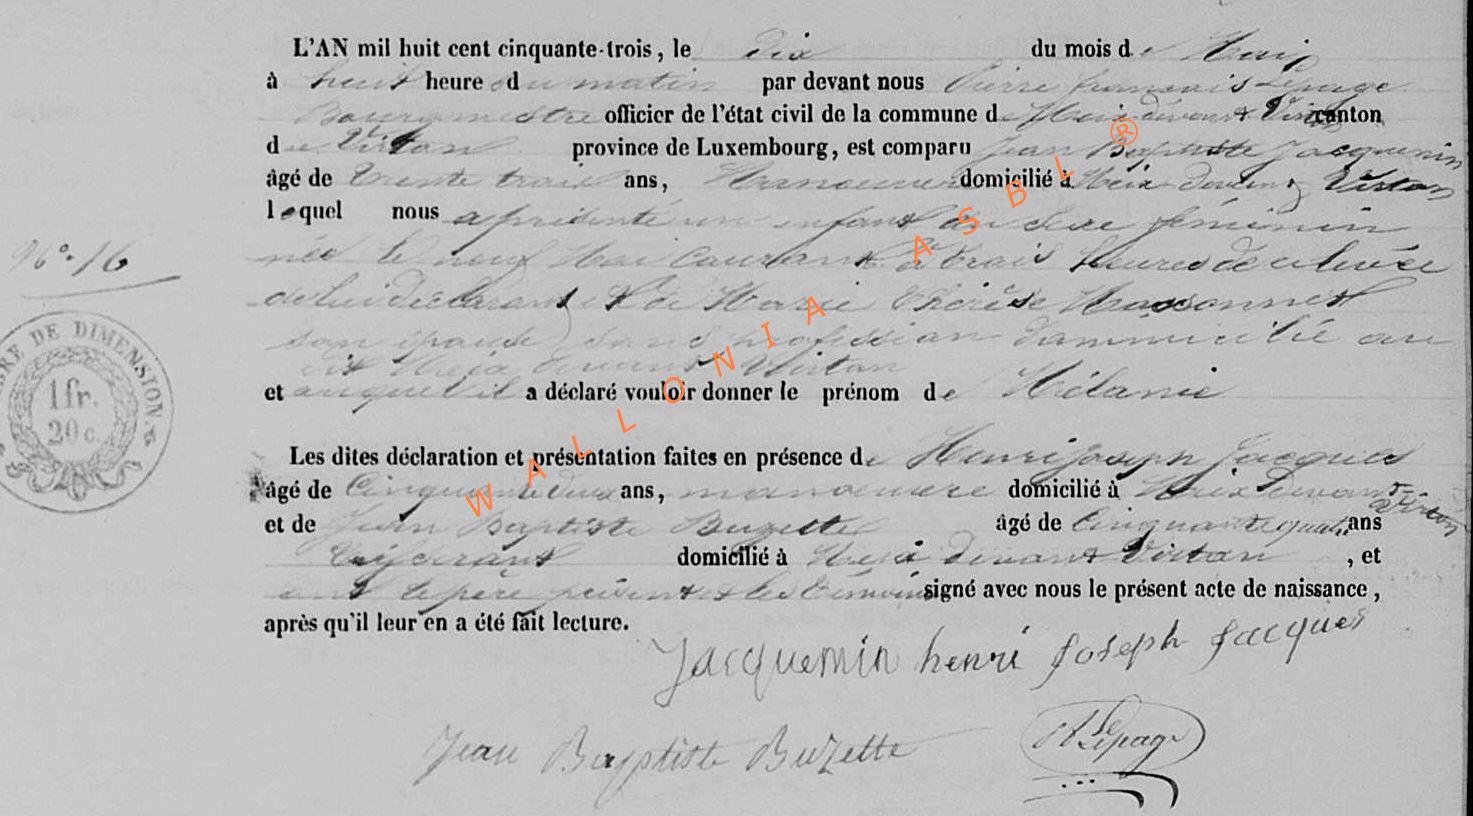 L'AN mil huit cent cinquante-trois, le dix du mois de Mai
à huit heures du matin par devant nous Pierre francois Lepage
Bourgmestre officier de l'état civil de la commune de Meix devant Virton canton
de Virton province de Luxembourg, est comparu Jean Baptiste Jacquemin
âgé de trente trois ans, Manoeuvre domicilié à Meix devant Virton
lequel nous a présenté un enfant du sexe féminin
née le neuf Mai Courant à trois heures de relevée
de lui déclarant et de Marie Thérèse Massonnet
son épouse, sans profession domicilié au
dit Meix devant Virton
et auquel il a déclaré vouloir donner le prénom de Mélanie
N°. 16
TIMBRE DE DIMENSION
1 fr.
20 c.
Les dites déclaration et présentation faites en présence de Henri Joseph Jacques
âgé de Cinquante deux ans, manoeuvre domicilié à Meix devant Virton
et de Jean Baptiste Buzette âgé de Cinquante quatre ans
domicilié à Meix devant Virton, et
ont le père présent et les témoins signé avec nous le présent acte de naissance,
après qu'il leur en a été fait lecture.
Jacquemin henri Joseph Jacques
Jean Baptiste Buzette Lepage
WALLONIA ASBL ®